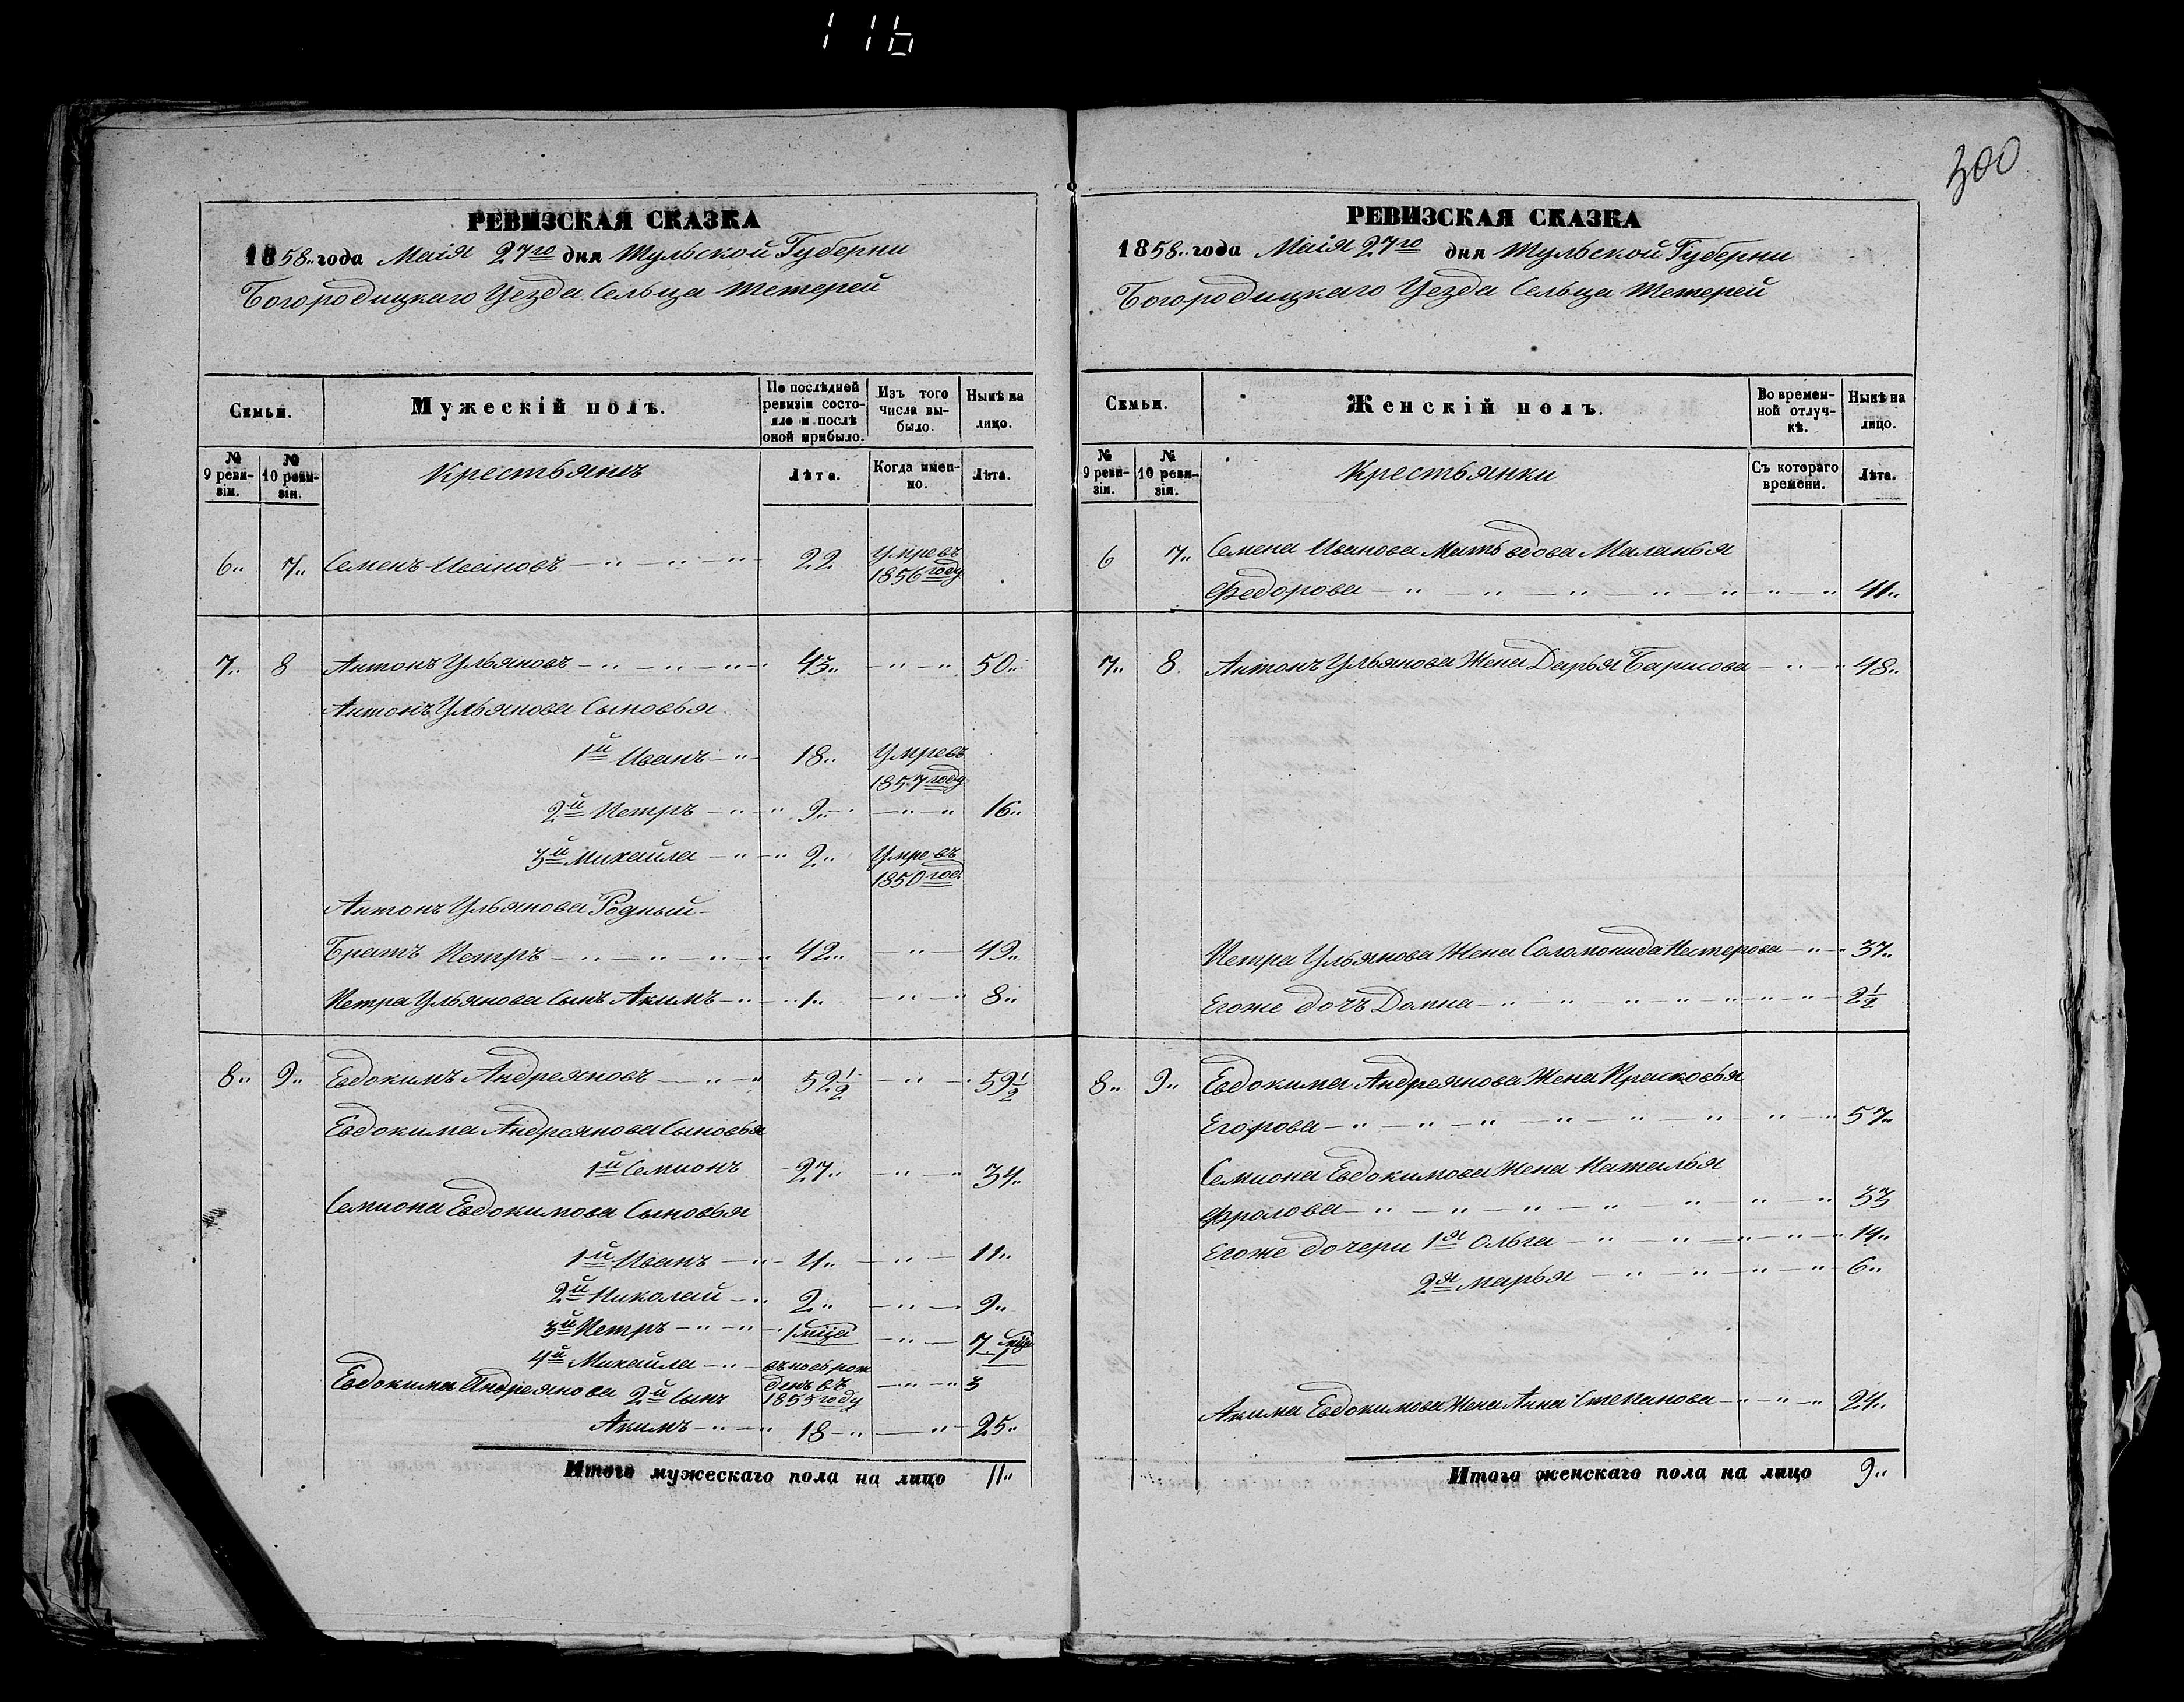 116
300
РЕВИЗСКАЯ СКАЗКА
1858.. года Маія 27го дня Тульской Губерни
Богородицкаго Уезда Сельца Тетерей
Семьи.
Мужескій полъ.
По послѣдней ревизіи состояло и послѣ оной прибыло.
Изъ того числа выбыло.
Нынѣ на лицо.
№ 9 ревизіи.
№ 10 ревизіи.
Крестьянъ
Лѣта.
Когда именно.
Лѣта.
6.. 7.. Семенъ Ивановъ — .. — .. — .. 22 Умре въ
1856 году
7.. 8 Антонъ Ульяновъ — .. — .. — .. 43.. — .. — .. 50..
Антонъ Ульянова Сыновья
1й Иванъ — .. 18.. Умре въ
1857 году
2й Петръ — .. — .. 9.. — .. — .. 16..
3й Михайла — .. — .. 2.. Умре въ
1850 год
Антонъ Ульянова Родный
Братъ Петръ — .. — .. — .. 42.. — .. — 49..
Петра Ульянова Сынъ Акимъ — .. — .. 1.. — .. — .. 8..
8.. 9.. Евдокимъ Андреяновъ — .. — .. 52 1/2 — .. — .. 59 1/2
Евдокима Андреянова Сыновья
1й Семионъ 27.. — .. — .. 34..
Семиона Евдокимова Сыновья
1й Иванъ — .. 4.. — .. — 11..
2й Николай — .. 2.. — .. — 9..
3й Петръ — .. — .. 1 мца — .. — 7
4й Михайла — .. — вновь рож
Евдокима Андреянова 2й Сынъ денъ въ — .. — .. 3
1855 году
Акимъ — .. — .. 18 — .. — .. — 25..
Итого мужескаго пола на лицо 11..
РЕВИЗСКАЯ СКАЗКА
1858.. года Маія 27го дня Тульской Губерни
Богородицкаго Уезда Сельца Тетерей
Семьи.
Женскій полъ.
Во временной отлучкѣ.
Нынѣ на лицо.
№ 9 ревизіи.
№ 10 ревизіи.
Крестьянки
Съ котораго времени.
Лѣта.
6 7.. Семена Иванова Мать вдова Маланья
Федорова — .. — .. — .. — .. — .. — .. 41..
7.. 8. Антонъ Ульянова Жена Дарья Барисова — .. — .. 48..
Петра Ульянова Жена Соломонида Нестерова — .. — .. 37..
Егоже дочъ Домна — .. — .. — .. — .. — .. 2 1/2
8.. 9.. Евдокима Андреянова Жена Прасковья
Егорова — .. — .. — .. — .. — .. — .. — .. 57..
Семиона Евдокимова Жена Наталья
Фролова — .. — .. — .. — .. — .. — .. 33
Егоже дочери 1я Ольга — .. — .. — .. — .. 14..
2я Марья — .. — .. — .. — .. 6..
Акима Евдокимова Жена Анна Степанова — .. — .. 24..
Итого женскаго пола на лицо 9..